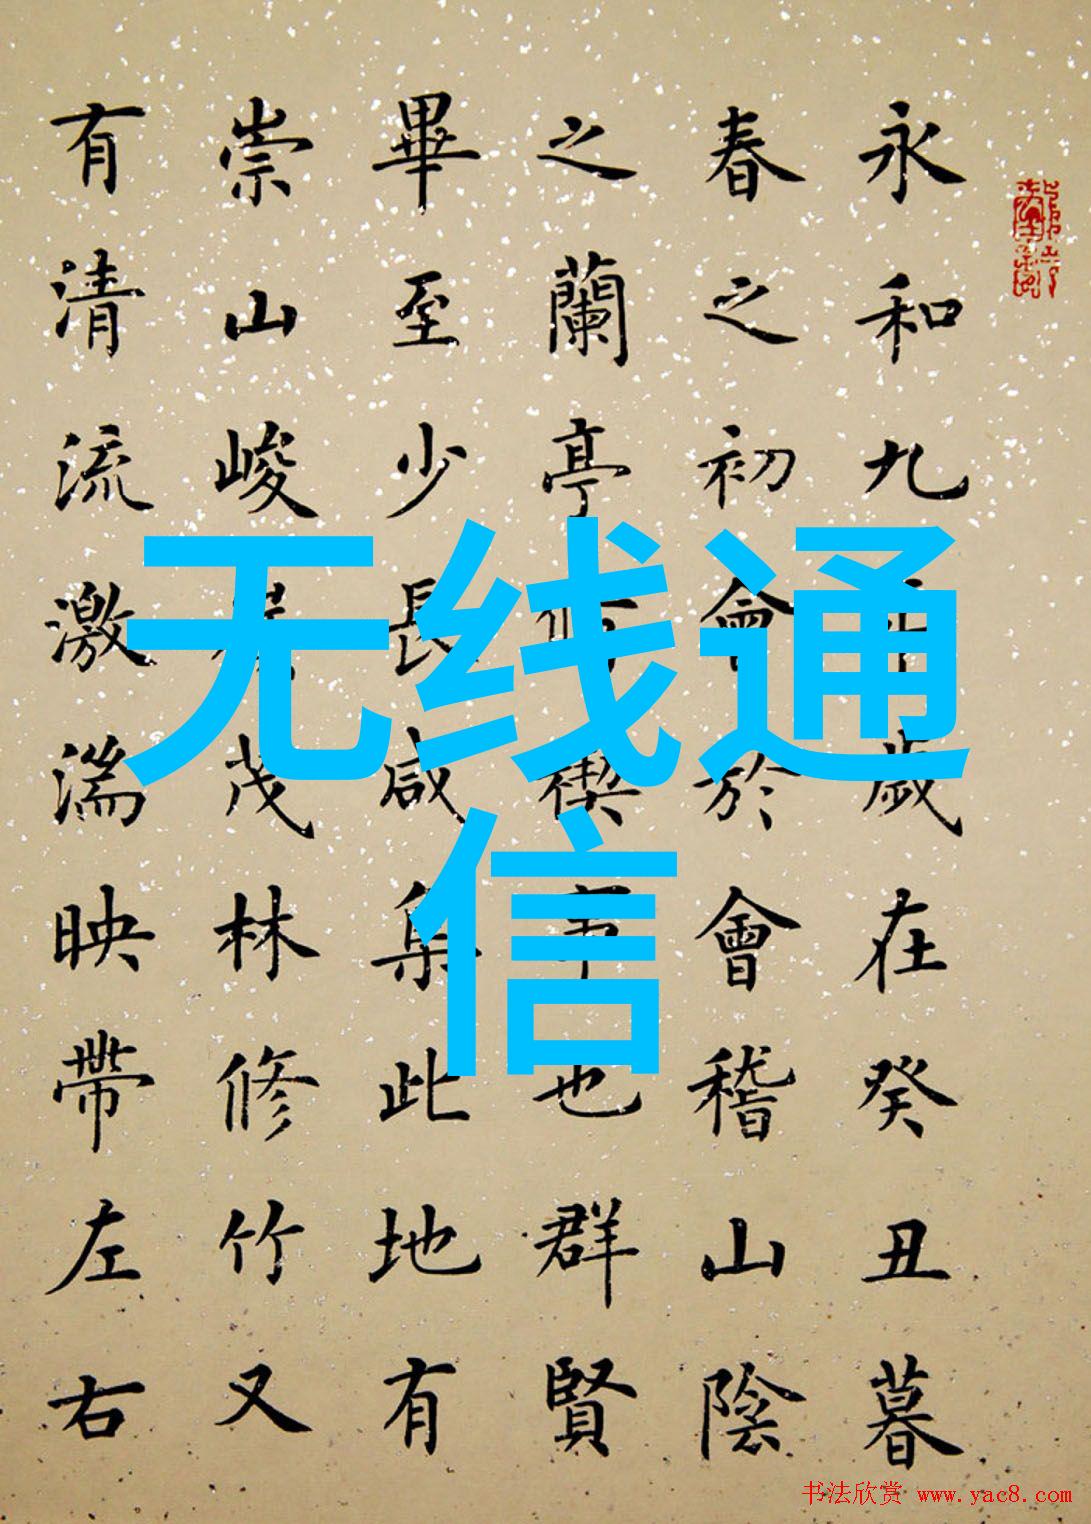 永和九年歲在癸丑暮
春之初會於會稽山陰
之蘭亭脩禊事也群賢
畢至少長咸集此地有
崇山峻茂林修竹又
有清流激湍映帶左右
无线通
信
书法欣赏 www.yac8.com